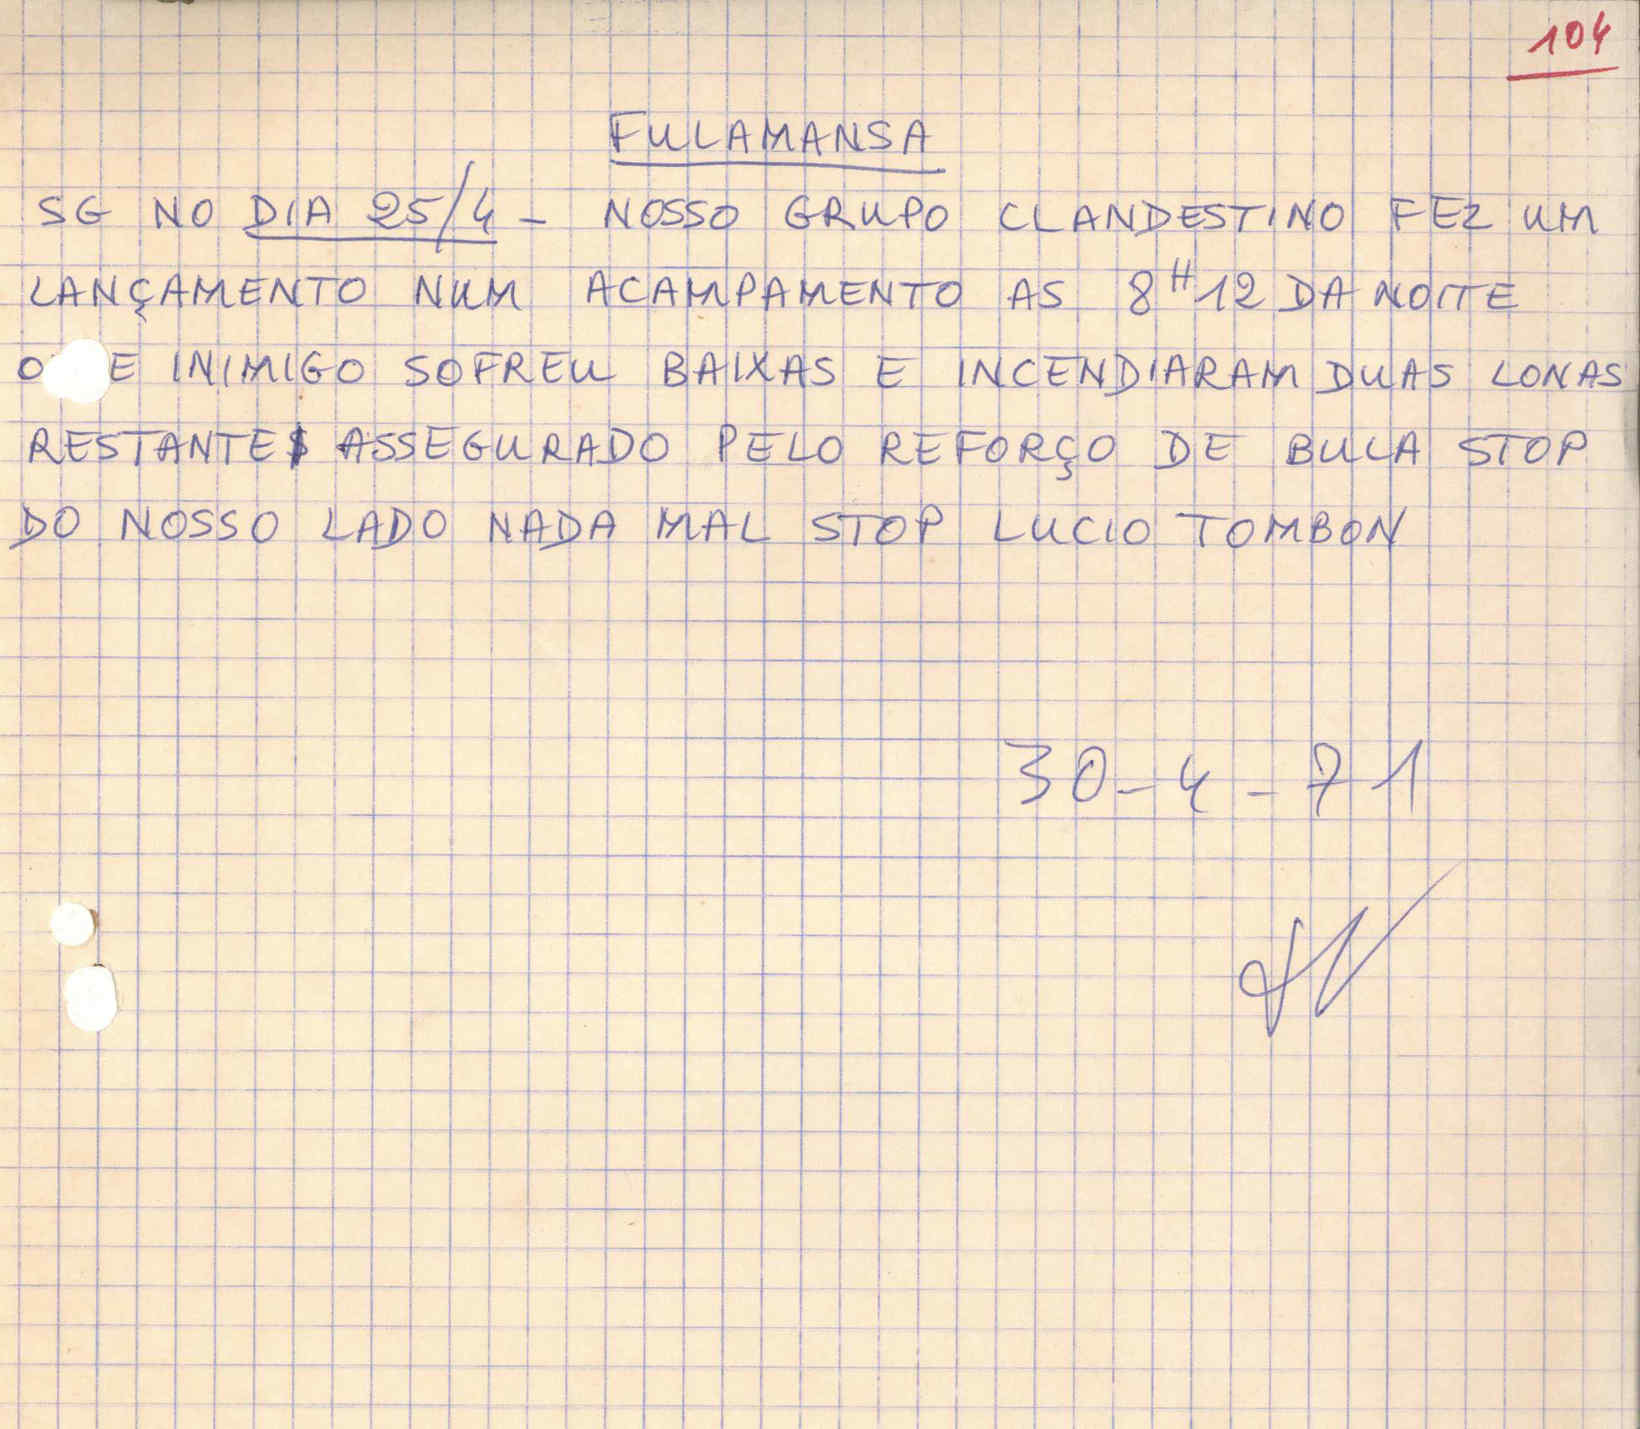 104
FULAMANSA
SG NO DIA 25/4 - NOSSO GRUPO CLANDESTINO FEZ UM
LANÇAMENTO NUM ACAMPAMENTO AS 8H12 DA NOITE
INIMIGO SOFREU BAIXAS E INCENDIARAM DUAS LONAS
RESTANTES ASSEGURADO PELO REFORÇO DE BULA STOP
DO NOSSO LADO NADA MAL STOP LUCIO TOMBON
30-4-71